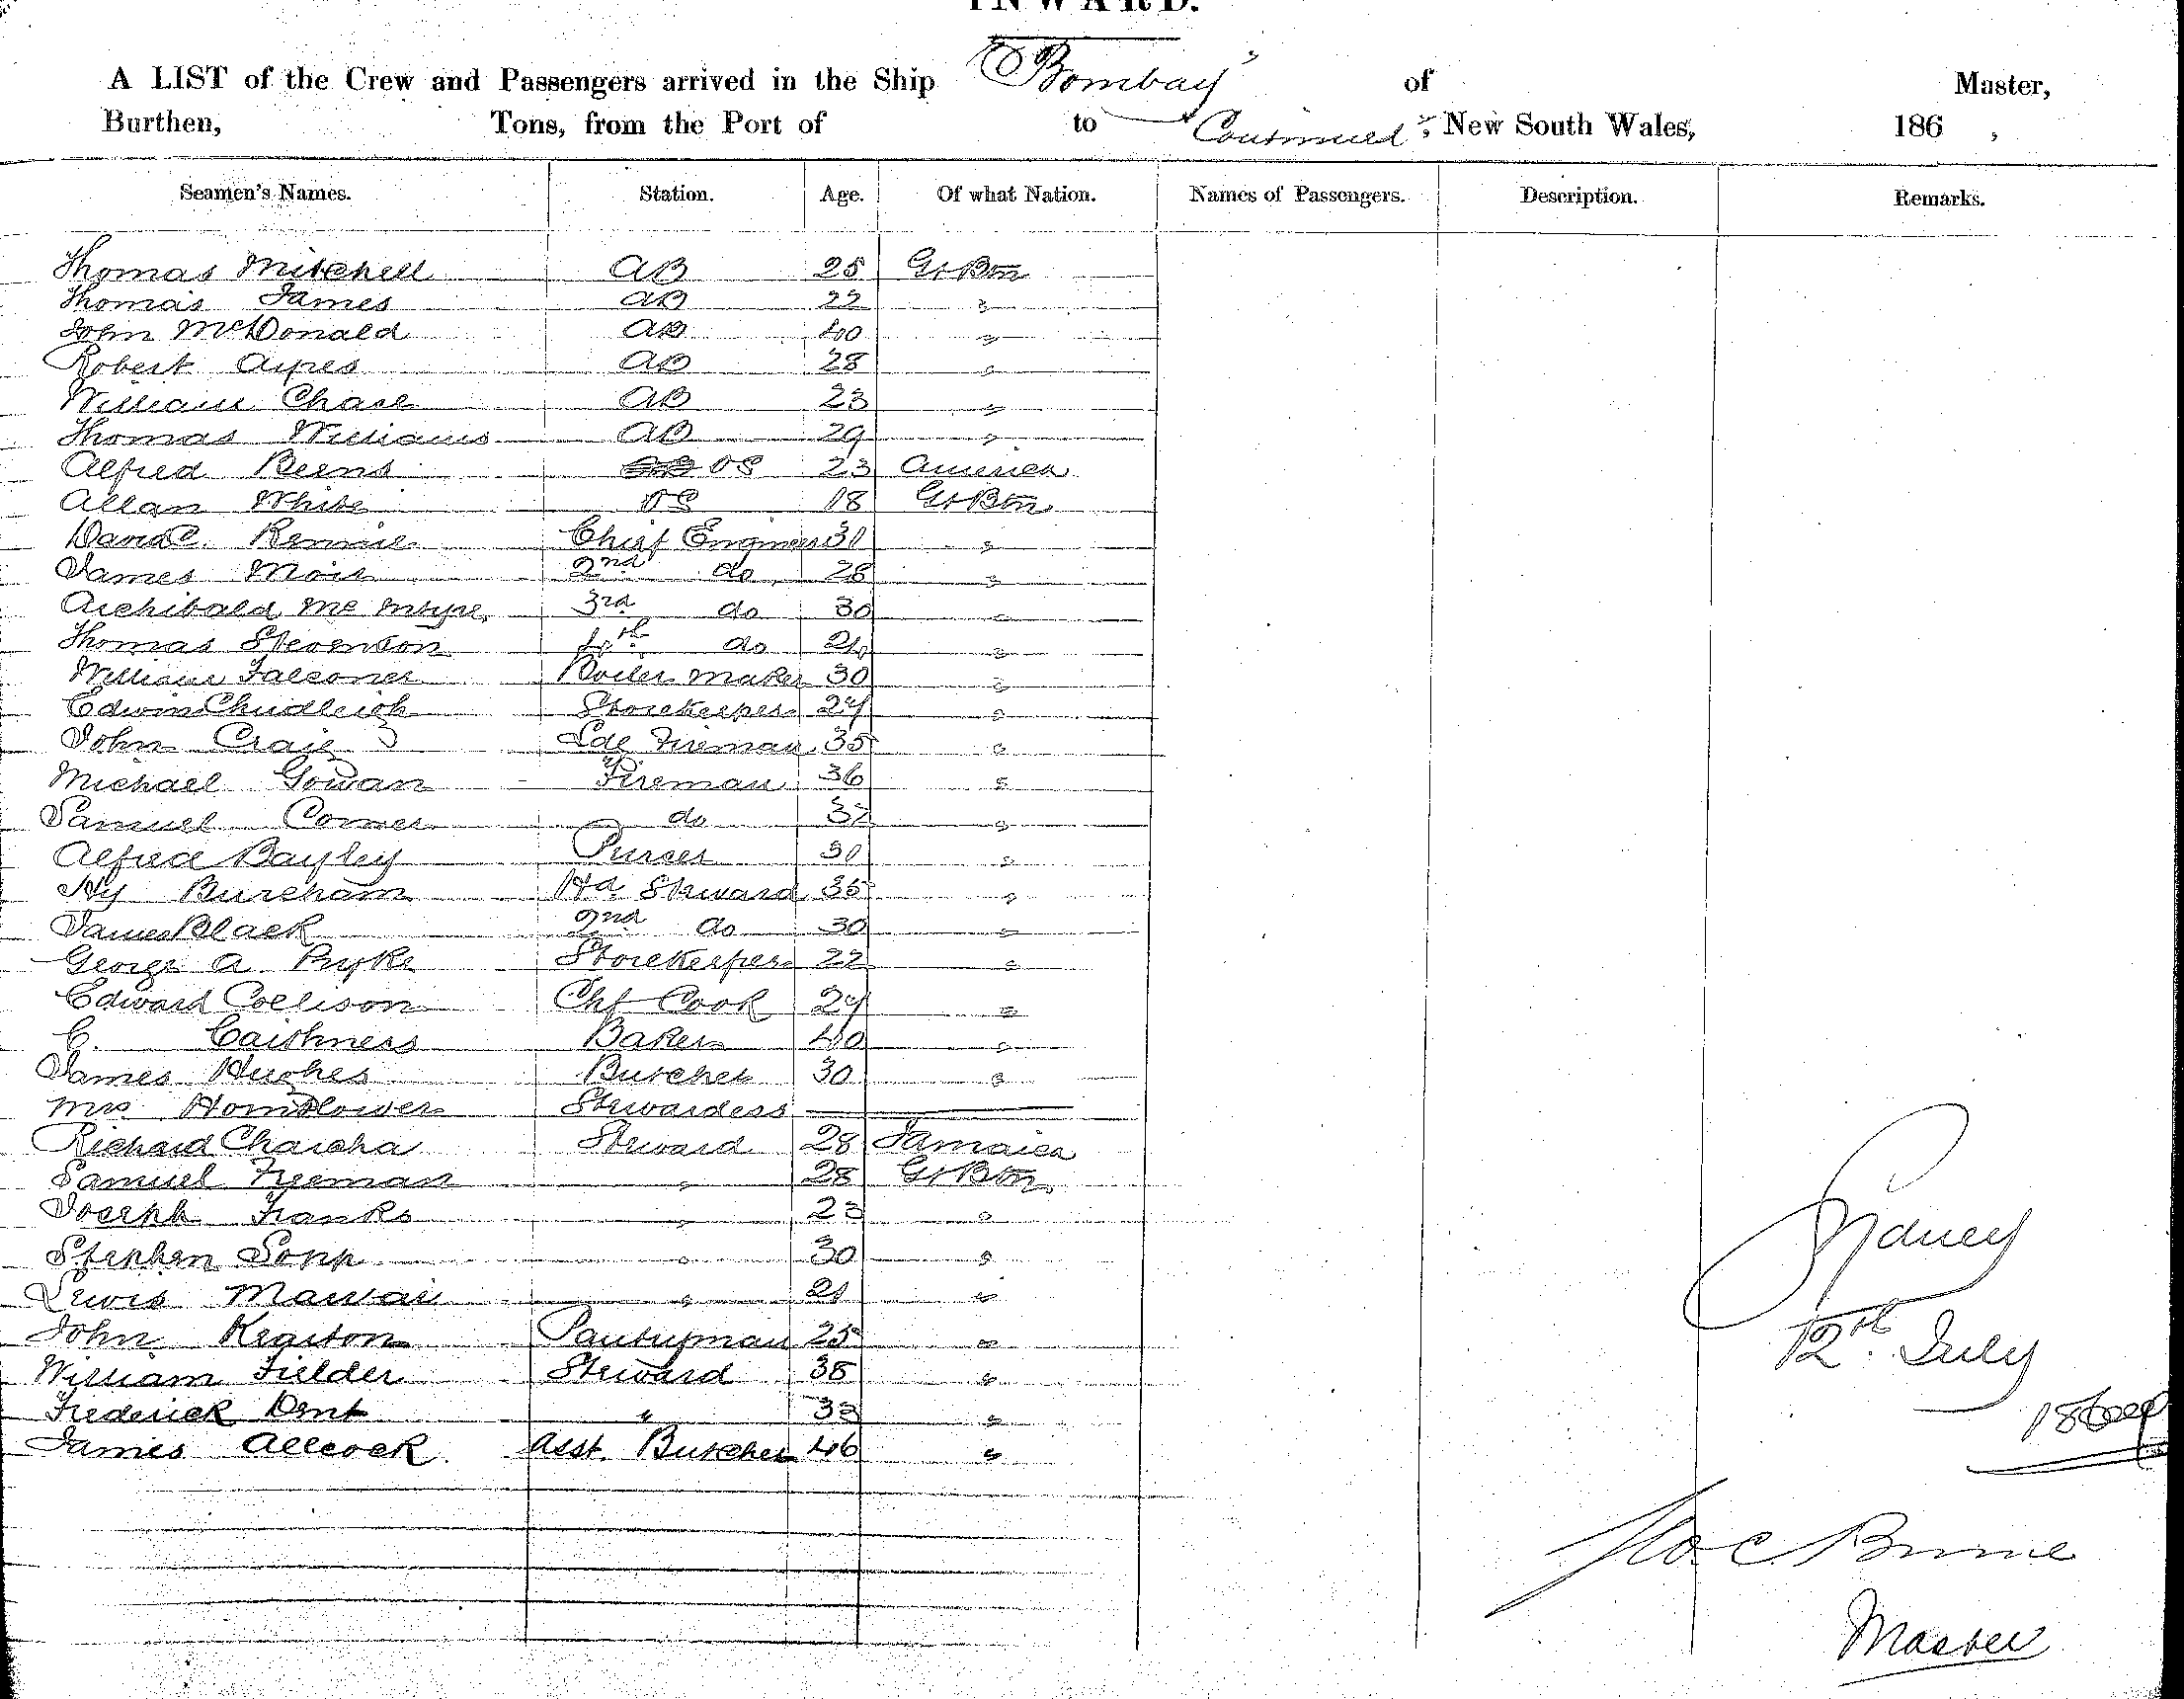 INWARD.
A LIST of the Crew and Passengers arrived in the Ship "Bombay" of Master,
Burthen, Tons, from the Port of to Continued, New South Wales, 186 ,
Seamen's Names. Station. Age. Of what Nation. Names of Passengers. Description. Remarks.
Thomas Mitchell AB 25 Gt Btn
Thomas James AB 22 "
John McDonald AB 40 "
Robert Ayres AB 28 "
William Chase AB 23 "
Thomas Williams AB 29 "
Alfred Beens OS 23 America
Allan White OS 18 Gt Btn
David C. Rennie Chief Engineer 31 "
James Moir 2nd do 28 "
Archibald McIntyre 3rd do 30 "
Thomas Stevenson 4th do 24 "
William Falconer Boiler maker 30 "
Edwin Chudleigh Storekeeper 24 "
John Craig Ldg Fireman 35 "
Michael Gowan Fireman 36 "
Samuel Corner do 32 "
Alfred Bayley Purser 30 "
Hy Burcham Hd Steward 35 "
James Black 2nd do 30 "
George A. Pryke Storekeeper 22 "
Edward Collison Chf Cook 24 "
C. Caithness Baker 40 "
James Hughes Butcher 30 "
Mrs Hornblower Stewardess
Richard Steward 28 Jamaica
Samuel Freeman " 28 Gt Btn
Joseph Franks " 23 "
Stephen Sopp " 30 "
Lewis 21 "
John Keaston Pantryman 25 "
William Fielder Steward 35 "
Frederick Dent " 33 "
James Allcock Asst. Butcher 46 "
Sydney
12th July
Master